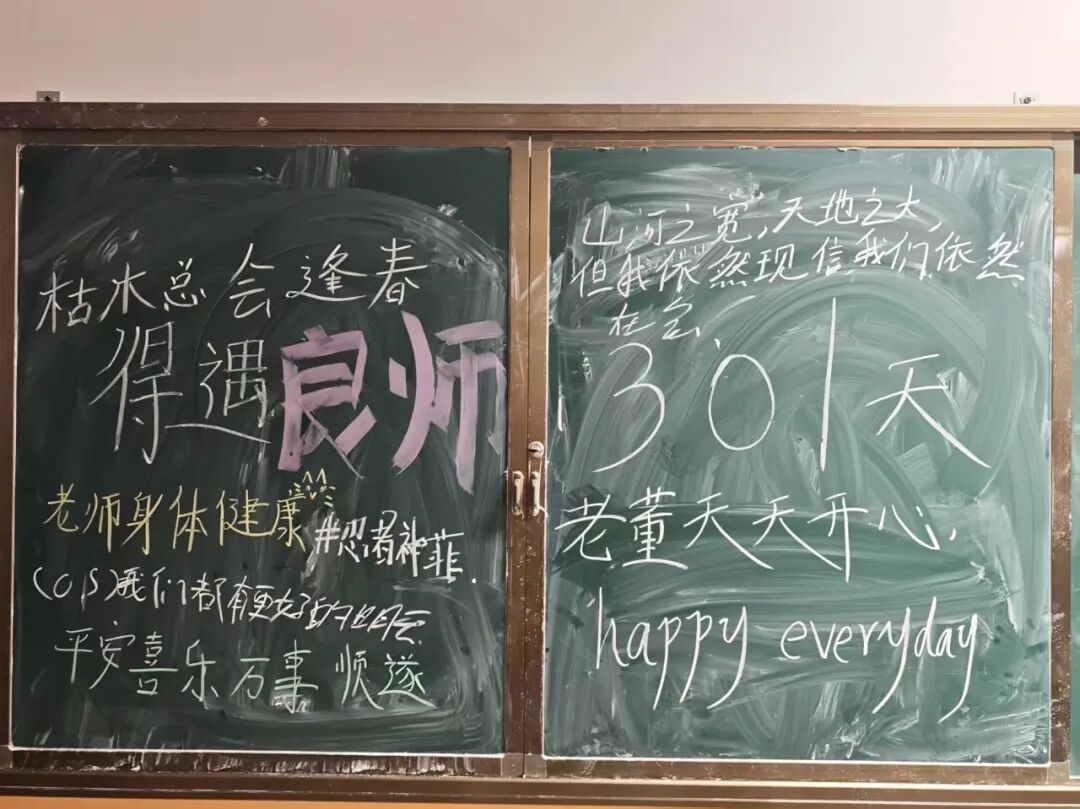 枯木总会逢春
得遇良师
老师身体健康
#忍者神菲.
(01S)我们都有更好的
平安喜乐万事顺遂
山河之宽,天地之大,
但我依然现信我们依然
在会
301天
老董天天开心.
happy everyday